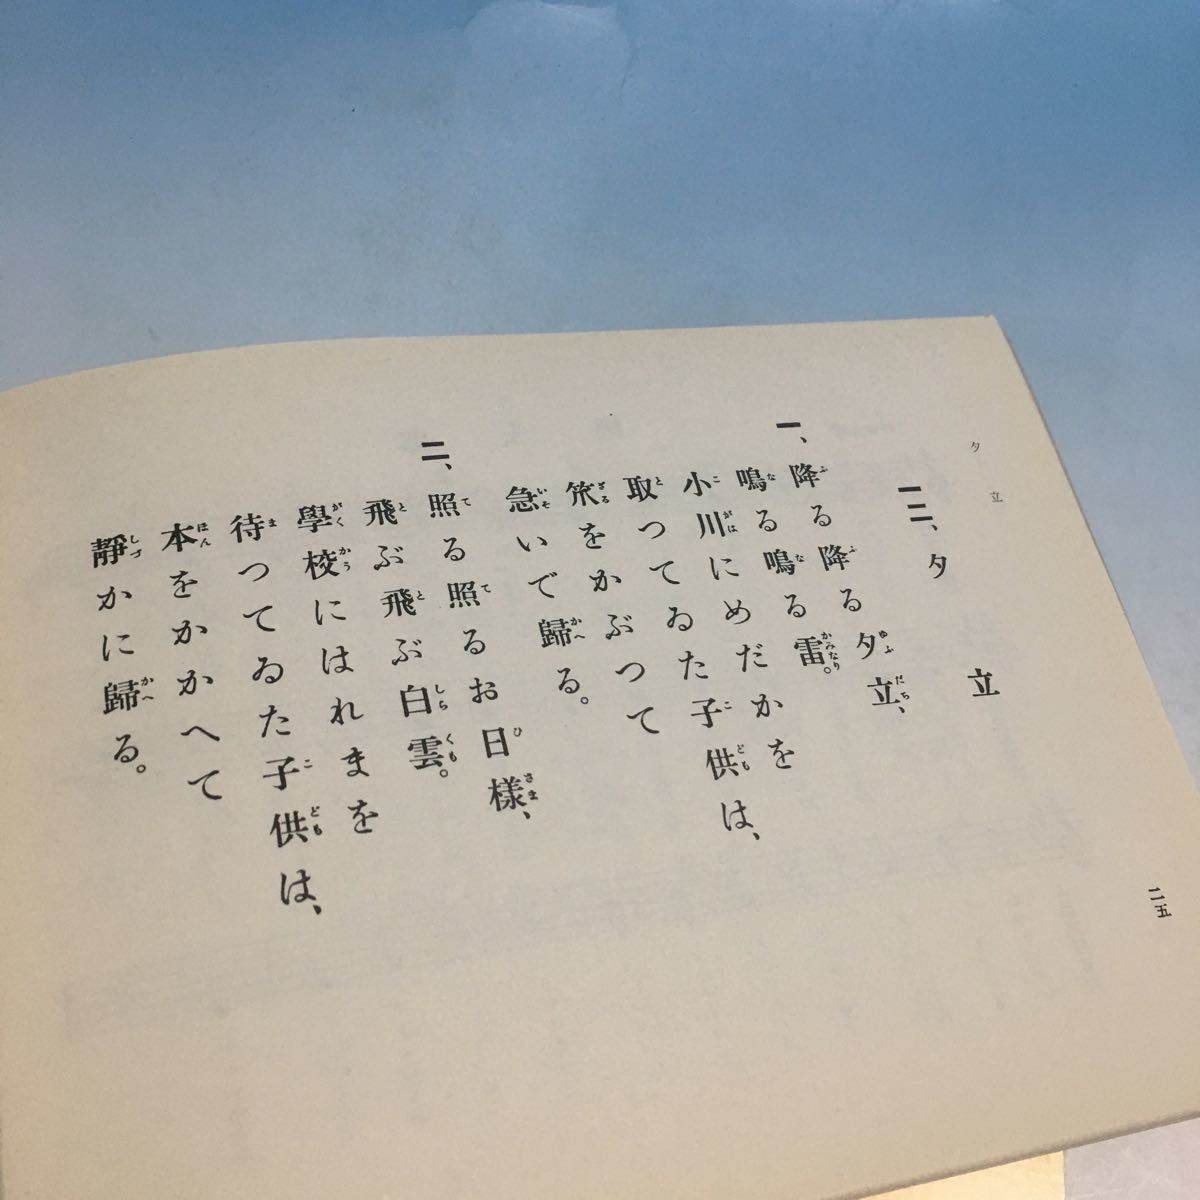 夕立
一二、夕立
一、降る降る夕立、
鳴る鳴る雷。
小川にめだかを
取つてゐた子供は、
笊をかぶつて
急いで歸る。
二、照る照るお日樣、
飛ぶ飛ぶ白雲。
學校にはれまを
待つてゐた子供は、
本をかかへて
靜かに歸る。
二五